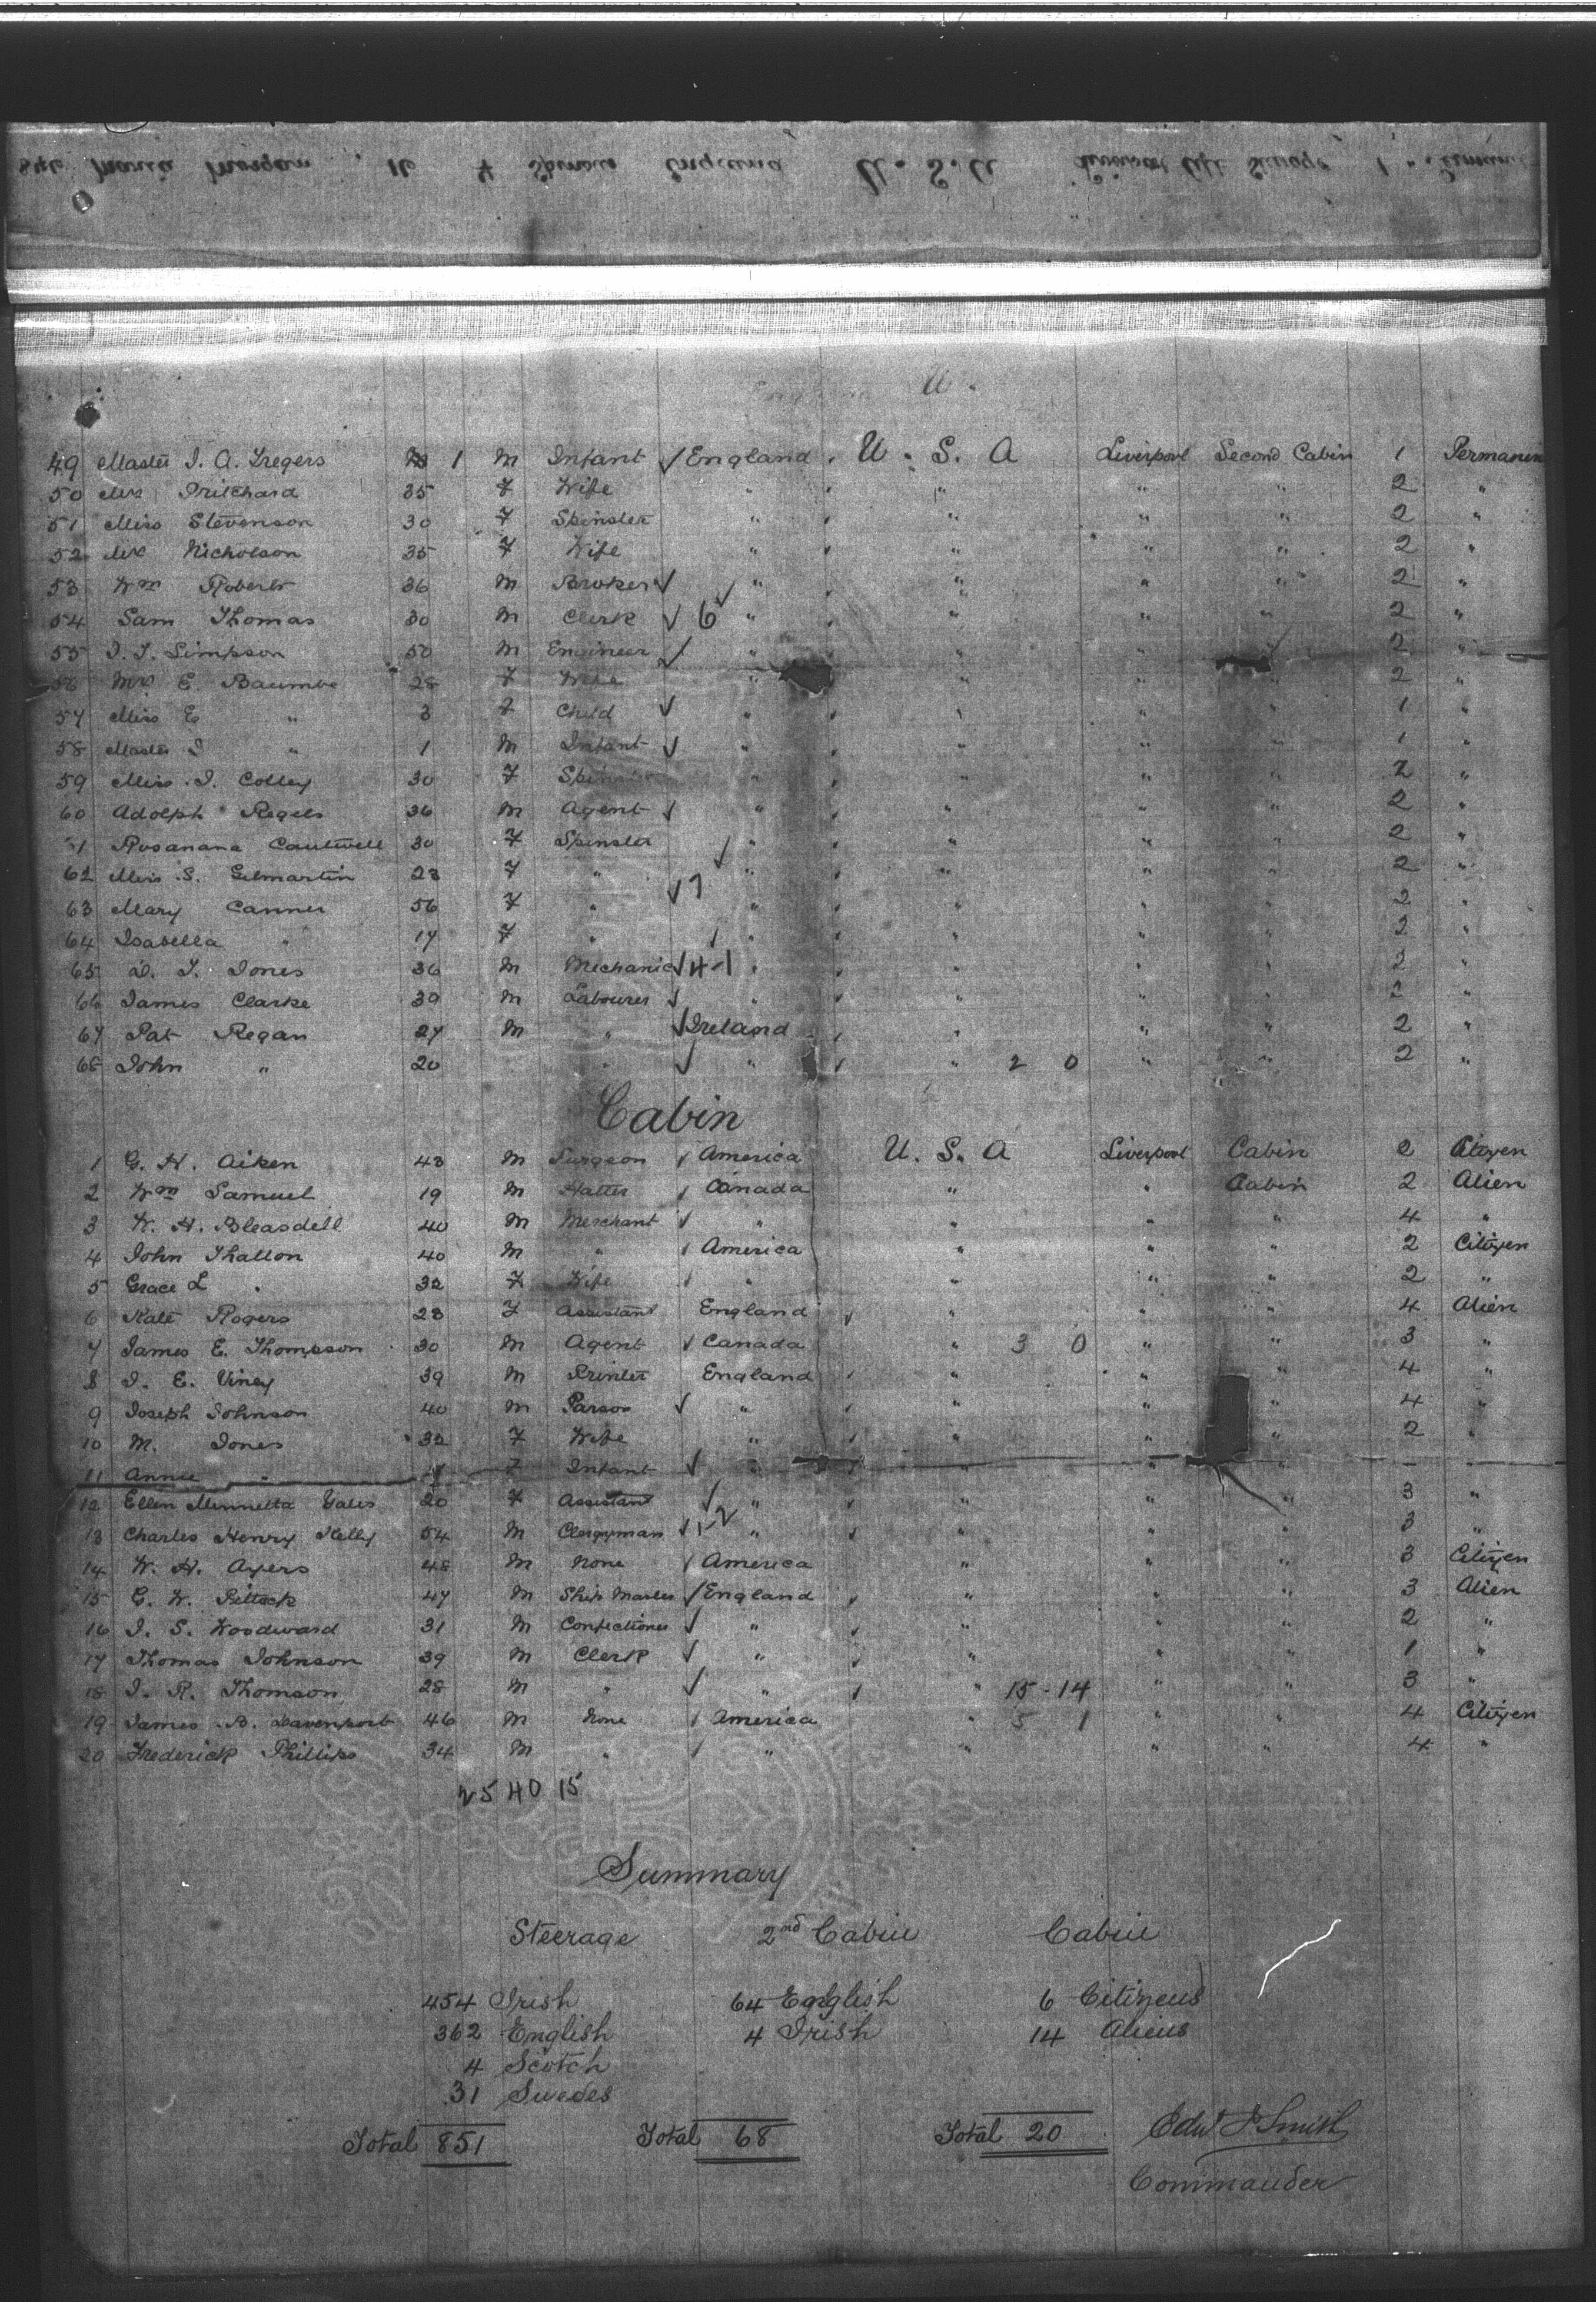 Maria Morgan 16 F England U. S. A
49 Master J. A. Tregers 1 M Infant ✓ England U. S. A Liverpool Second Cabin 1
50 Mrs Pritchard 35 F Wife " " " " 2 "
51 Miss Stevenson 30 F Spinster " " " " 2 "
52 Mrs Nicholson 35 F Wife " " " " 2 "
53 Wm Roberts 36 M Broker ✓ " " " " 2 "
54 Sam Thomas 30 M Clerk ✓ 6 " " " " 2 "
55 J. T. Simpson 50 M Engineer ✓ " " " " 2 "
56 Mrs E. Baumbe 28 F Wife " " " " 2 "
57 Miss E " 3 F Child ✓ " " " " 1 "
58 Master J " 1 M Infant ✓ " " " " 1 "
59 Miss J. Colley 30 F " " " " 2 "
60 Adolph Regels 36 M Agent ✓ " " " " 2 "
61 Rosanana Cautwell 30 F Spinster ✓ " " " " 2 "
62 Miss S. Gilmartin 23 F " " " " " 2 "
63 Mary Canner 56 F " ✓ 7 " " " " 2 "
64 Isabella " 17 F " " " " " 2 "
65 D. T. Jones 36 M Mechanic ✓ 4-1 " " " " 2 "
66 James Clarke 39 M Labourer ✓ " " " " 2 "
67 Pat Regan 27 M " ✓ Ireland " " " 2 "
68 John " 20 " ✓ " " 2 0 " " 2 "
Cabin
1 G. H. Aiken 43 M Surgeon America U. S. A Liverpool Cabin 2 Citizen
2 Wm Samuel 19 M Hatter Canada " " Cabin 2 Alien
3 W. H. Bleasdell 40 M Merchant ✓ " " " " 4 "
4 John Thallon 40 M " America " " " 2 Citizen
5 Grace L " 32 F Wife " " " " 2 "
6 Kate Rogers 23 F Assistant England " " " 4 Alien
7 James E. Thompson 30 M Agent ✓ Canada " 3 0 " " 3 "
8 J. E. Viney 39 M Printer England " " " 4 "
9 Joseph Johnson 40 M Parson ✓ " " " " 4 "
10 M. Jones 32 F Wife " " " 2 "
11 Annie " F Infant ✓ " " " " - -
12 Ellen Minnetta Yates 20 F Assistant ✓ " " " " 3 "
13 Charles Henry Kelly 54 M Clergyman ✓ 1-2 " " " " 3 "
14 W. H. Ayers 48 M None America " " " 3 Citizen
15 C. W. Pittock 47 M Ship Master ✓ England " " " 3 Alien
16 J. S. Woodward 31 M Confectioner ✓ " " " " 2 "
17 Thomas Johnson 39 M Clerk ✓ " " " " 1 "
18 J. R. Thomson 28 M " ✓ " " 15-14 " " 3 "
19 James B. Davenport 46 M None America " 5 1 " " 4 Citizen
20 Frederick Phillips 34 M " " " " " 4 "
25 40 15
Summary
Steerage 2nd Cabin Cabin
454 Irish 64 English 6 Citizens
362 English 4 Irish 14 Aliens
4 Scotch
31 Swedes
Total 851 Total 68 Total 20 Edw J Smith
Commander